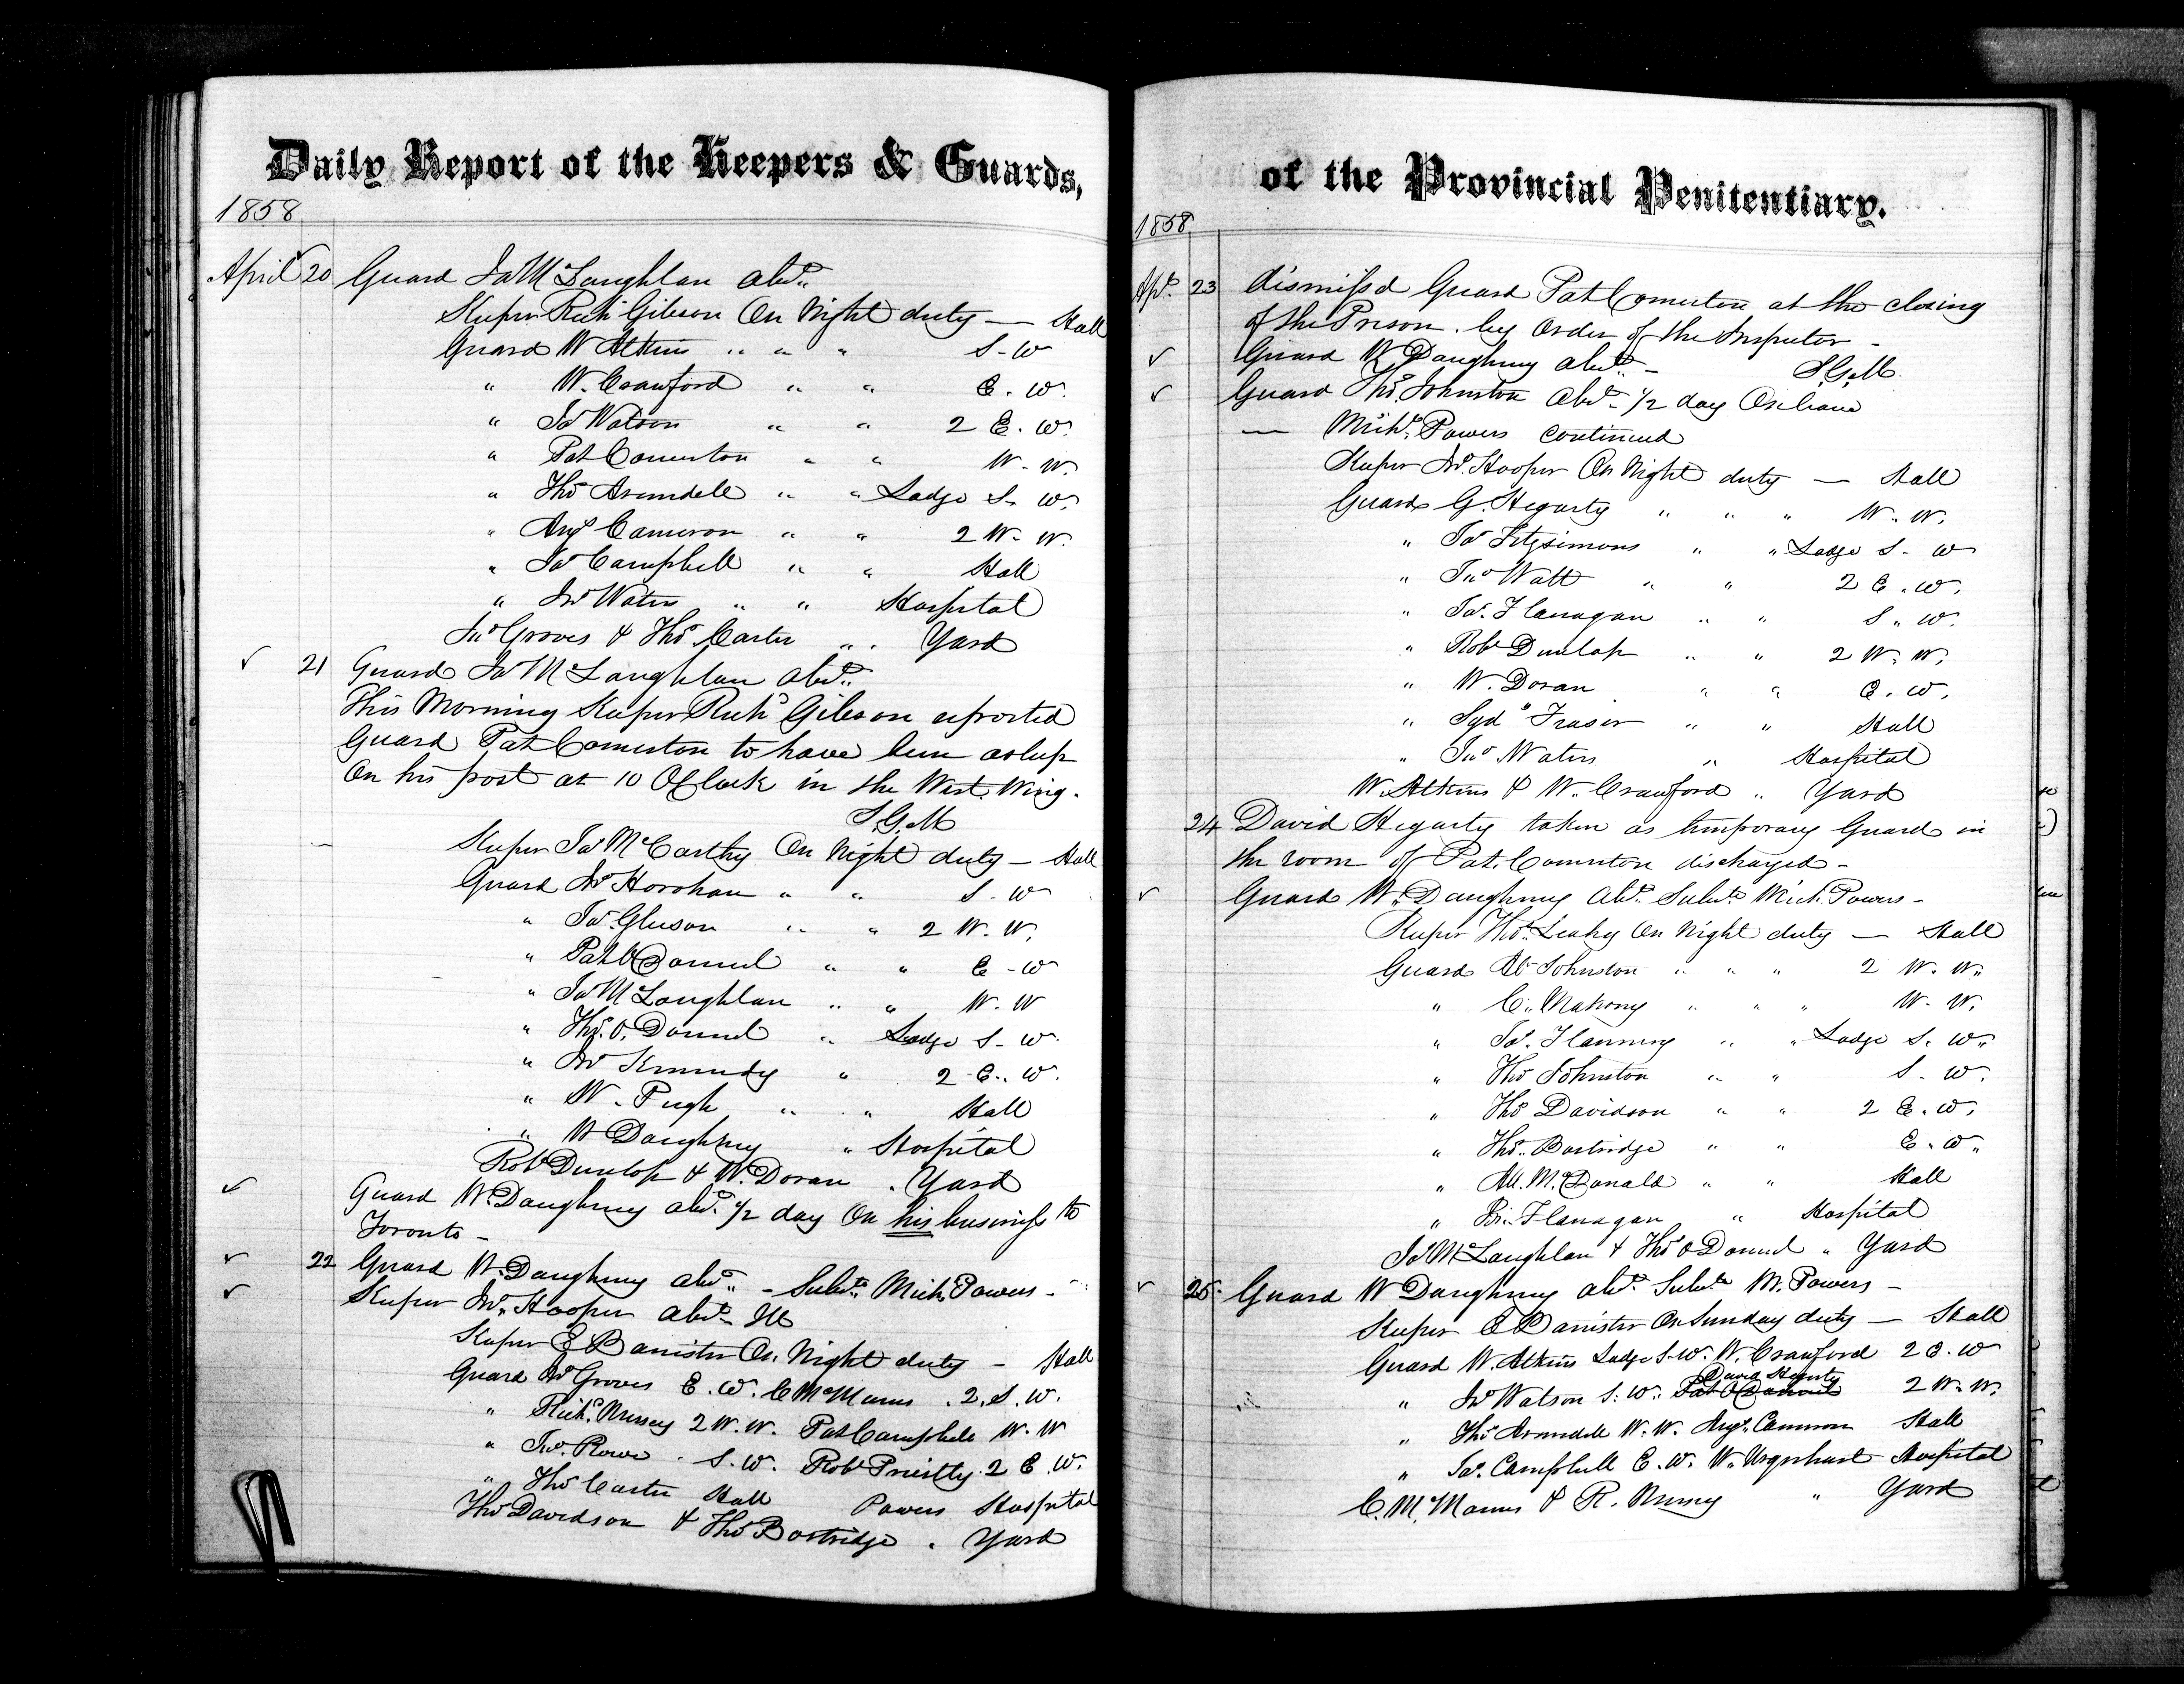 Daily Report of the Keepers & Guards,
1858
April 20 Guard Jas McLaughlan absd.
Keeper Richd Gibson On Night duty — Hall
Guard W Atkins " " " S - W
" W. Crawford " " E. W.
" Jas Watson " " 2 E. W.
" Pat Comerton " " W. W.
" Thos Arundell " " Lodge S. W.
" Angs Cameron " " 2 W. W.
" Jas Campbell " " Hall
" Jno Waters " " Hospital
Jno Groves & Thos Carter " . Yard
21 Guard Jas McLaughlan absd.
This Morning Keeper Richd Gibson reported
Guard Pat Comerton to have been asleep
On his post at 10 OClock in the West Wing.
S.G.M
Keeper Jas McCarthy On Night duty — Hall
Guard Jno Horohan " " S - W
" Jas Gleeson " " 2 W. W.
" Pat O Donnel " " E - W
" Jas McLaughlan " " W. W
" Thos. O. Donnel " Lodge S - W.
" Jno Kennedy " 2 E. W.
" W. Pugh " " Hall
" W Daughney " Hospital
Robt Dunlop & W. Doran . Yard
Guard W. Daughney absd. 1/2 day On his business to
Toronto -
22 Guard W. Daughney absd. - Subste Mich. Powers -
Keeper Jno. Hooper absd. Ill
Keeper E Banister On Night duty - Hall
Guard Jno Groves E. W. C McManus . 2. S. W.
" Richd. Nursey 2 W. W. Pat Campbell W. W
" Jno. Rowe . S. W. Robt Priestly . 2 E. W.
" Thos Carter Hall Powers Hospital
Thos Davidson & Thos Bostridge . Yard
of the Provincial Penitentiary.
1858
Apl. 23 dismissd Guard Pat Comerton at the closing
of the Prison. by Order of the Inspector -
Guard W Daughney absd. - S.G.M.
Guard Thos. Johnston absd. 1/2 day On leave
— Michl. Powers Continued
Keeper Jno. Hooper On Night duty — Hall
Guards G. Hegarty " " " W. W.
" Jas Fitzsimons " " Lodge S - W
" Jno Watt " " 2 E. W.
" Jas. Flanagan " " S. W.
" Robt Dunlop " " 2 W. W.
" W. Doran " " E. W.
" Sydy Fraser " " Hall
" Jno Waters " Hospital
W. Atkins & W. Crawford " Yard
24 David Hegarty taken as temporary Guard in
the room of Pat. Comerton discharged -
Guard W. Daughney Absd. Subste Mich. Powers -
Keeper Thos. Leahy On Night duty — Hall
Guard Ab Johnston " " " 2 W. W.
" C. Mahony " " " W. W.
" Jas. Flanney " " Lodge S. W.
" Thos Johnston " " S. W.
" Thos Davidson " " 2 E. W.
" Thos. Bostridge " " E. W.
" Al. McDonald " " Hall
" Br. Flanagan " Hospital
Jas McLaughlan & Thos O Donnel " Yard
25. Guard W Daughney absd. Subste M. Powers -
Keeper E Banister On Sunday duty — Hall
Guard W. Atkins Lodge S. W. W. Crawford 2 E. W
David Hegarty
" Jno Watson S. W. Pat O Donnel 2 W. W.
" Thos Arundell W. W. Angs. Cameron Hall
" Jas. Campbell E. W. W. Urquhart Hospital
C. McManus & R. Nursey " Yard